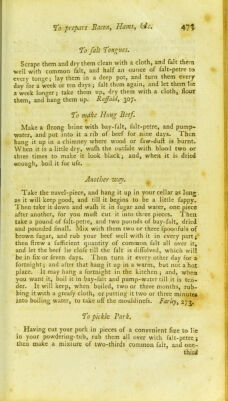 To prepare Bacon, Hams, &c. 473
To salt Tongues.
Scrape them and dry them clean with a cloth, and salt them
well with common salt, and half an ounce of salt-petre to
every tongue; lay them in a deep pot, and turn them every
day for a week or ten days; salt them again, and let them lie
a week longer; take them up, dry them with a cloth, flour
them, and hang them up. Raffald, 307.
To make Hung Beef.
Make a strong brine with bay-salt, salt-petre, and pump-
water, and put into it a rib of beef for nine days. Then
hang it up in a chimney where wood or saw-dust is burnt.
When it is a little dry, wash the outside with blood two or
three times to make it look black; and, when it is dried
enough, boil it for use.
Another way.
Take the navel-piece, and hang it up in your cellar as long
as it will keep good, and till it begins to be a little sappy.
Then take it down and wash it in sugar and water, one piece
after another, for you must cut it into three pieces. Then
take a pound of salt-petre, and two pounds of bay-salt, dried
and pounded small. Mix with them two or three spoonfuls of
brown sugar, and rub your beef well with it in every part;
then strew a sufficient quantity of common salt all over it,
and let the beef lie close till the salt is dissolved, which will
be in six or seven days. Then turn it every other day for a
fortnight; and after that hang it up in a warm, but not a hot
place. It may hang a fortnight in the kitchen; and, when
you want it, boil it in bay-salt and pump-water till it is ten-
der. It will keep, when boiled, two or three months, rub-
bing it with a greasy cloth, or putting it two or three minutes
into boiling water, to take off the mouldiness. Farley, 273.
To pickle Pork.
Having cut your pork in pieces of a convenient size to lie
in your powdering-tub, rub them all over with salt-petre;
then make a mixture of two-thirds common salt, and one-
third